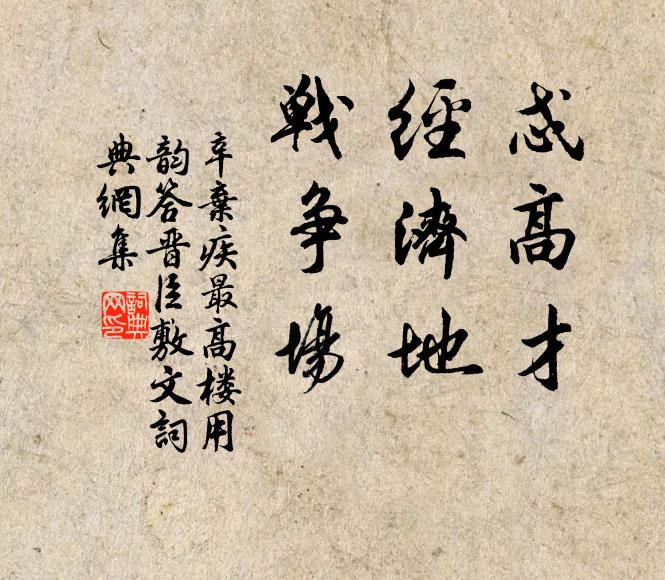 忒高才
經濟地
戦争場
辛棄疾最高楼用
韵答晋臣敷文詞
典網集
詞典网印